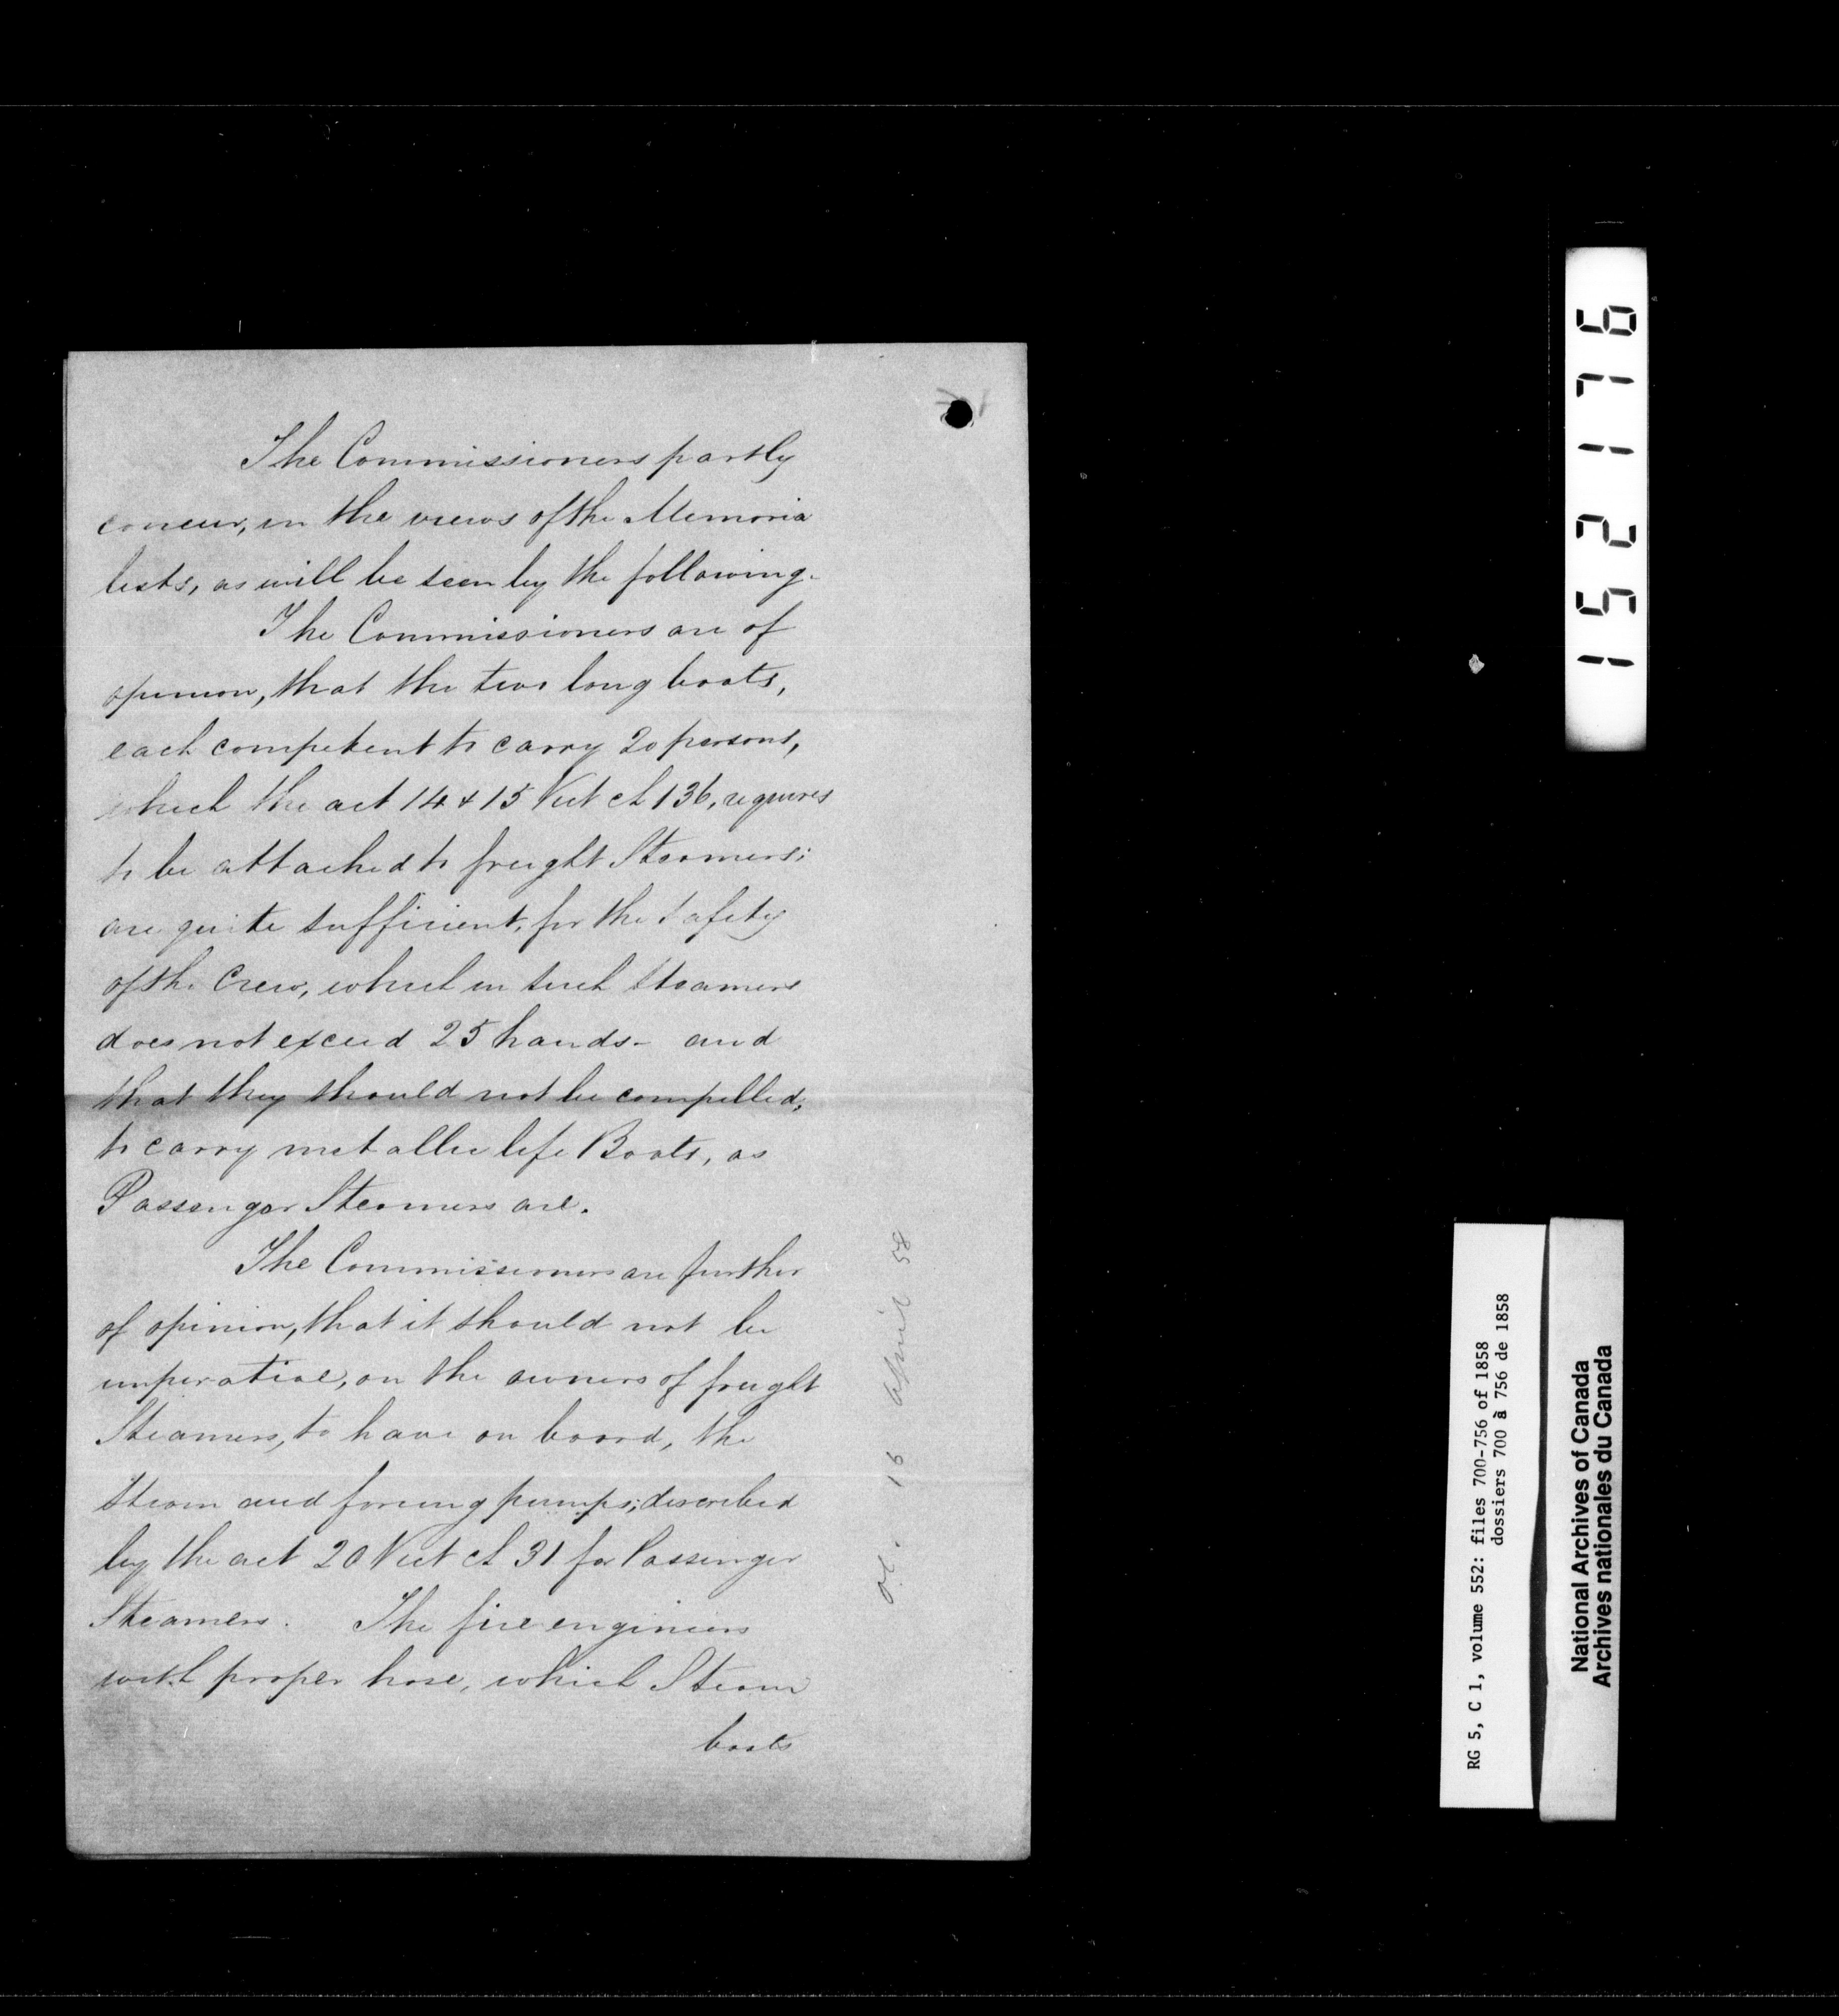 The Commissioners partly
concur, in the views of the Memoria
lists, as will be seen by the following.
The Commissioners are of
opinion, that the two long boats,
each competent to carry 20 persons,
which the act 14 & 15 Vict ch 136, requires
to be attached to freight Steamers;
are quite sufficient, for the safety
of the Crew, which in such Steamers
does not exceed 25 hands - and
that they should not be compelled,
to carry metallic life Boats, as
Passenger Steamers are.
The Commissioners are further
of opinion, that it should not be
imperative, on the owners of freight
Steamers, to have on board, the
steam and forcing pumps; described
by the act 20 Vict ch 31 for Passenger
Steamers. The fire engines
with proper hose, which Steam
boats
16 April 58
152176
RG 5, C 1, volume 552: files 700-756 of 1858
dossiers 700 à 756 de 1858
National Archives of Canada
Archives nationales du Canada